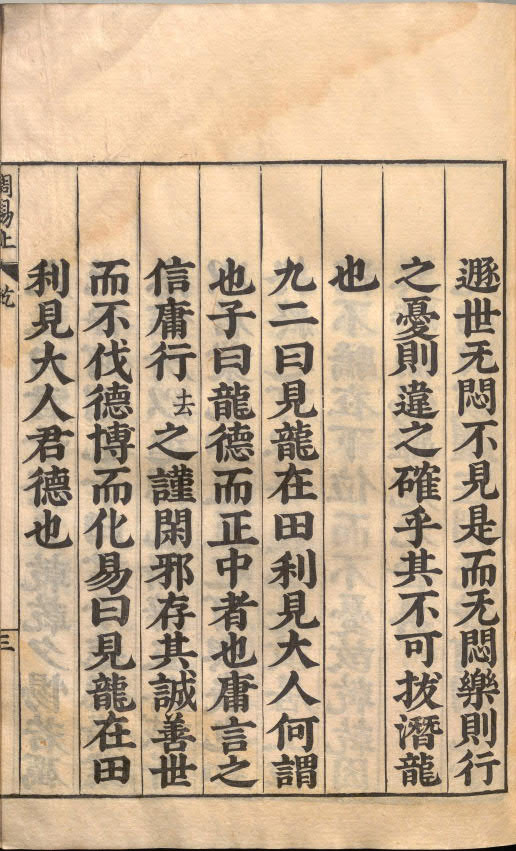 遯世无悶不見是而无悶樂則行
之憂則違之確乎其不可拔潛龍
也
九二曰見龍在田利見大人何謂
也子曰龍德而正中者也庸言之
信庸行去之謹閑邪存其誠善世
而不伐德博而化易曰見龍在田
利見大人君德也
周易上
乾
三